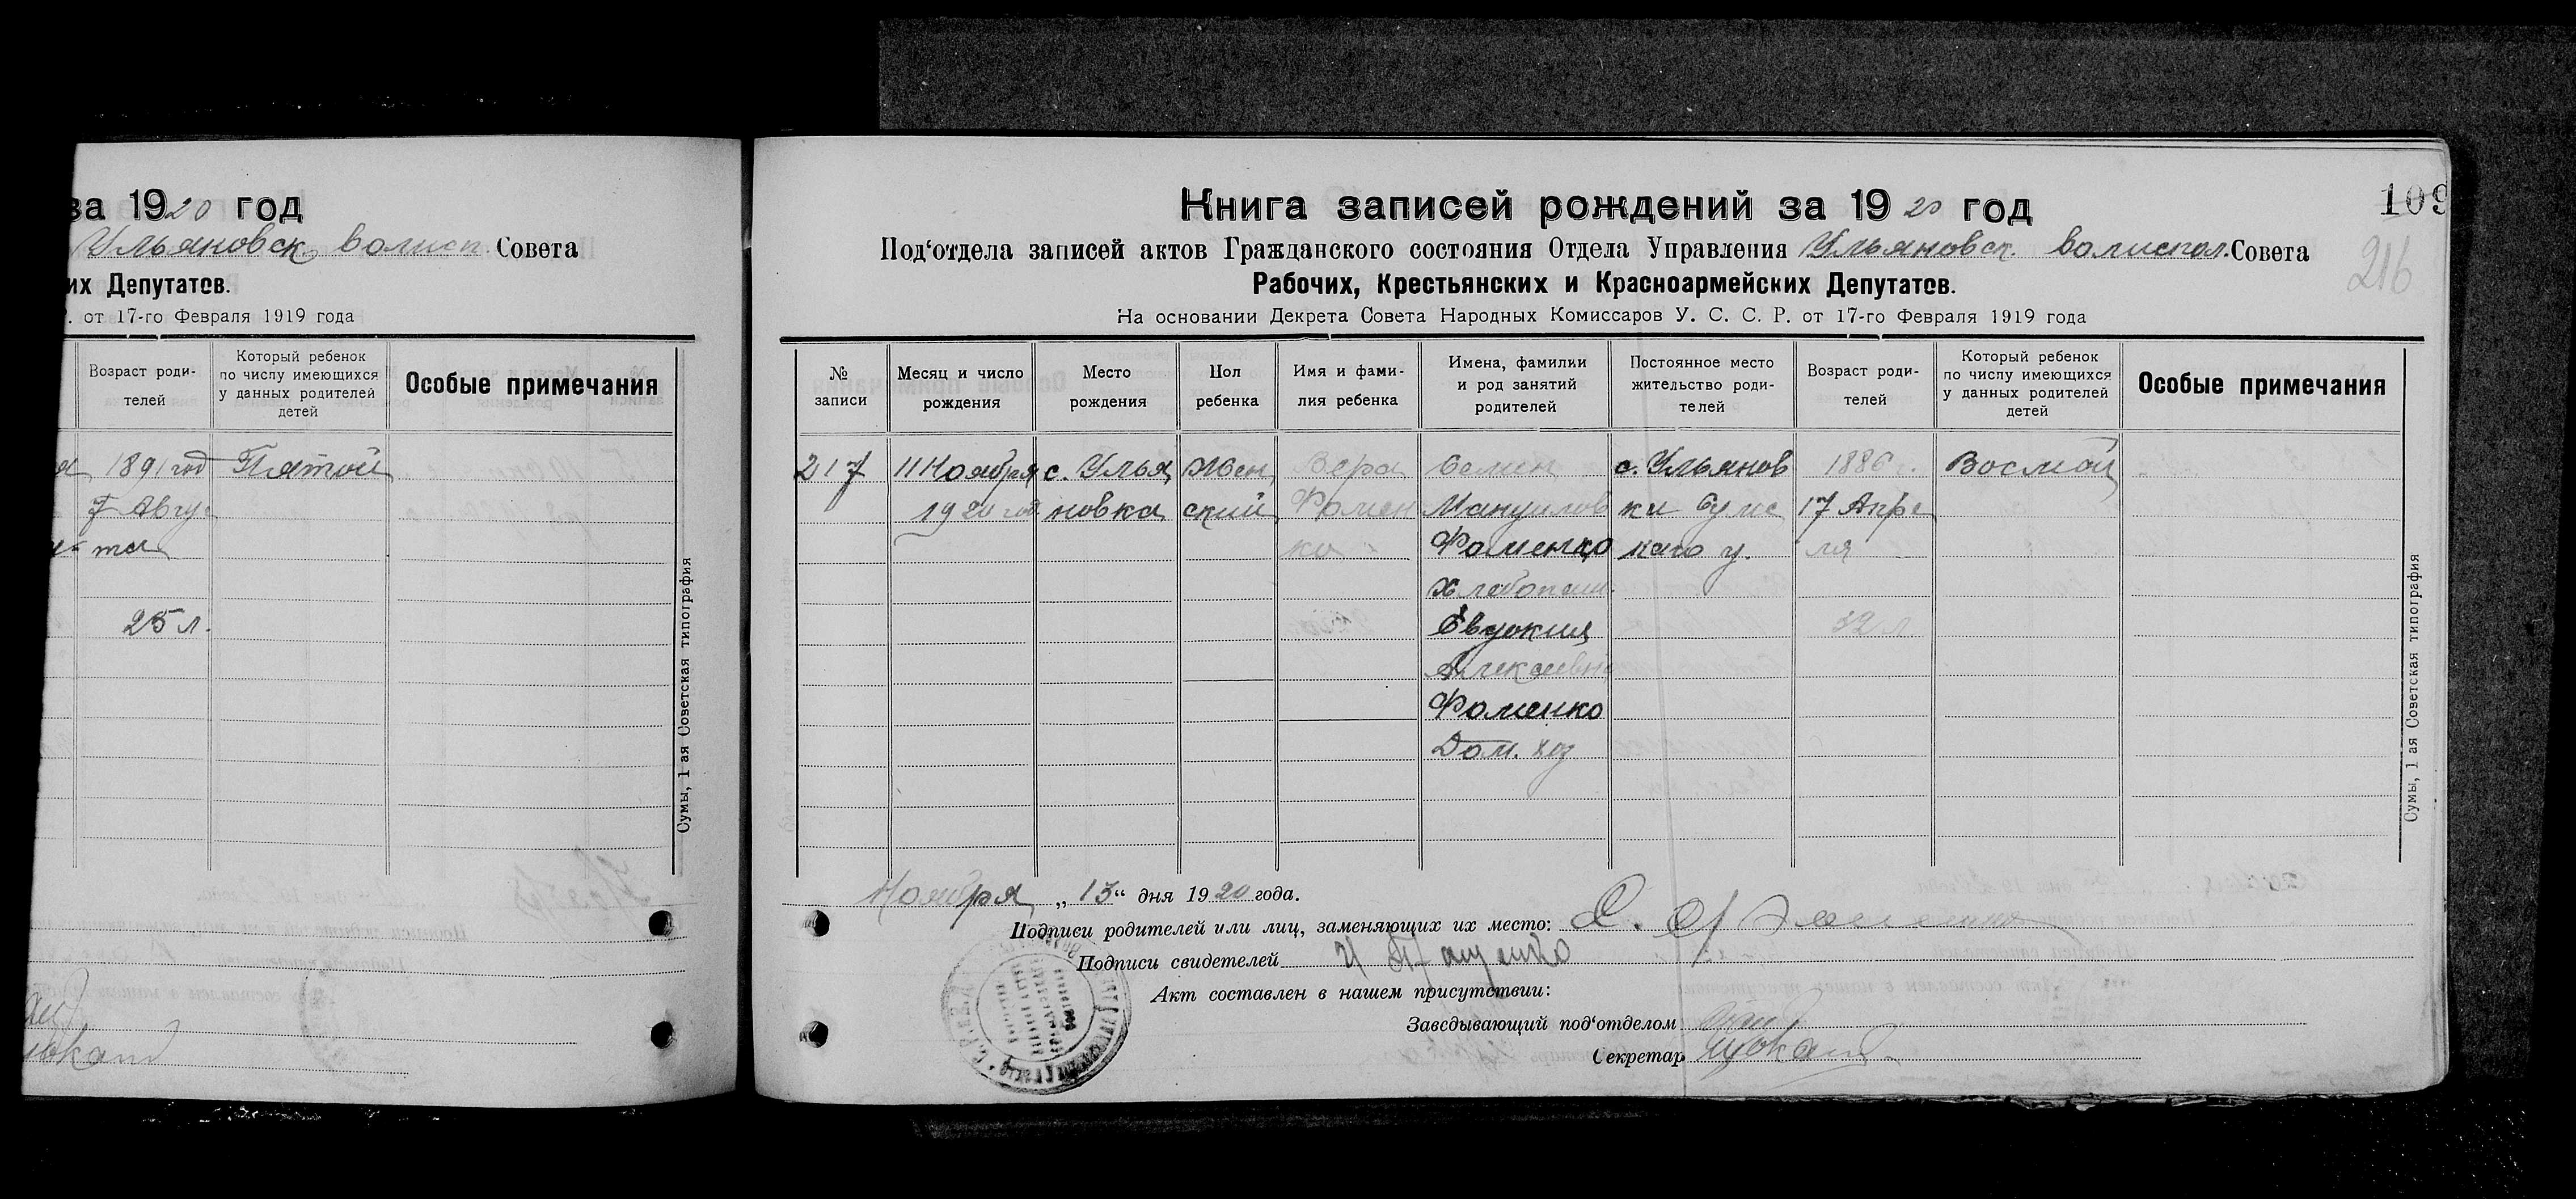 за 1920 год
Ульяновск. волисп. Совета
их Депутатов.
Р. от 17-го Февраля 1919 года
Возраст роди-
телей
Который ребенок
по числу имеющихся
у данных родителей
детей
Особые примечания
1891 год Пятой
7 Авгу
ста
25 л.
Сумы, 1 ая Советская типография
Книга записей рождений за 1920 год
109
Под‘отдела записей актов Гражданского состояния Отдела Управления Ульяновск. волиспол. Совета
216
Рабочих, Крестьянских и Красноармейских Депутатов.
На основании Декрета Совета Народных Комиссаров У. С. С. Р. от 17-го Февраля 1919 года
№
записи
Месяц и число
рождения
Место
рождения
Пол
ребенка
Имя и фами-
лия ребенка
Имена, фамилии
и род занятий
родителей
Постоянное место
жительство роди-
телей
Возраст роди-
телей
Который ребенок
по числу имеющихся
у данных родителей
детей
Особые примечания
217 11 Ноября с. Улья Жен Вера Семен с. Ульянов 1886 г. Восмой
1920 год новка ский Фомен Мануилов ки Сумс 17 Апре
ко Фоменко каго у. ля
Хлебопаш.
Евдокия 32 л
Алексеевна
Фоменко
Дом. хоз
Сумы, 1 ая Советская типография
Ноября „ 13 “ дня 1920 года.
Подписи родителей или лиц, заменяющих их место: С. Фоменко
Подписи свидетелей
Акт составлен в нашем присутствии:
Заведывающий под‘отделом
Секретар